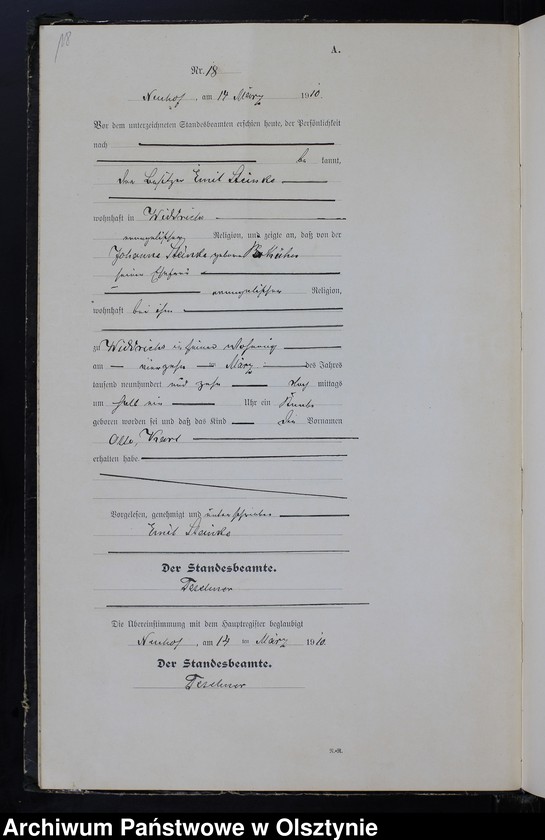 118
A.
Nr. 18
Neuhof, am 14 März 1910
Vor dem unterzeichneten Standesbeamten erschien heute, der Persönlichkeit
nach
be kannt,
der Besitzer Emil Steinke
wohnhaft in Widdrich
evangelischer Religion, und zeigte an, daß von der
Johanna Steinke geborene
seiner Ehefrau
evangelischer Religion,
wohnhaft bei ihm
zu Widdrichs in seiner Wohnung
am vierzehn März des Jahres
tausend neunhundert und zehn Nach mittags
um halb ein Uhr ein Knabe
geboren worden sei und daß das Kind die Vornamen
Otto, Karl
erhalten habe.
Vorgelesen, genehmigt und unterschrieben
Emil Steinke
Der Standesbeamte.
Teschner
Die Übereinstimmung mit dem Hauptregister beglaubigt
Neuhof, am 14 ten März 1910.
Der Standesbeamte.
Teschner
Archiwum Państwowe w Olsztynie